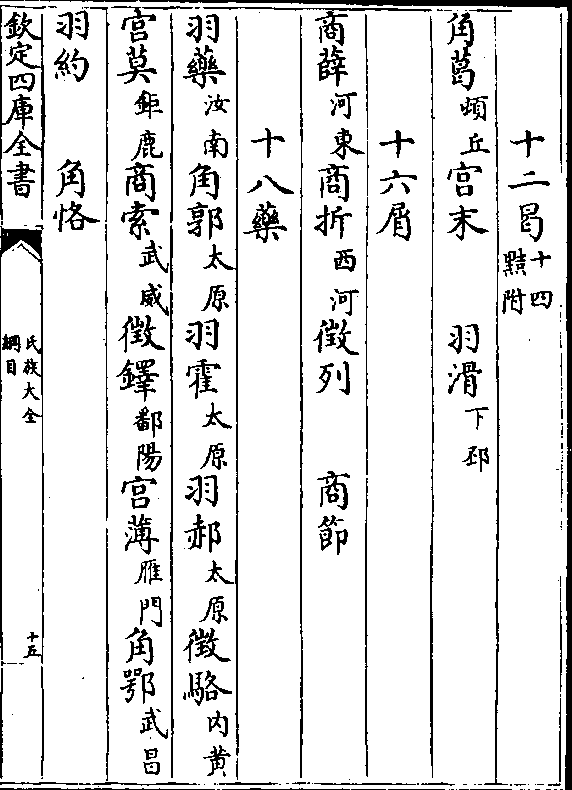 十二曷十四黠附
角葛頓丘宫末　羽滑下邳
十六屑
商薛河東商折西河徵列　商節
十八藥
羽藥汝南角郭太原羽霍太原羽郝太原徵駱内黄
宫莫鉅鹿商索武威徵鐸鄱陽宫薄雁門角鄂武昌
羽約　角恪
欽定四庫全書
氏族大全
綱目
十五